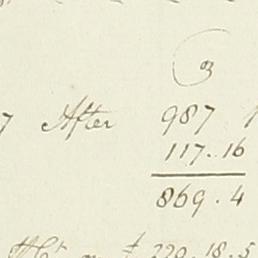 oz
7 After 987
117..16
869.4
£ 220.18.5